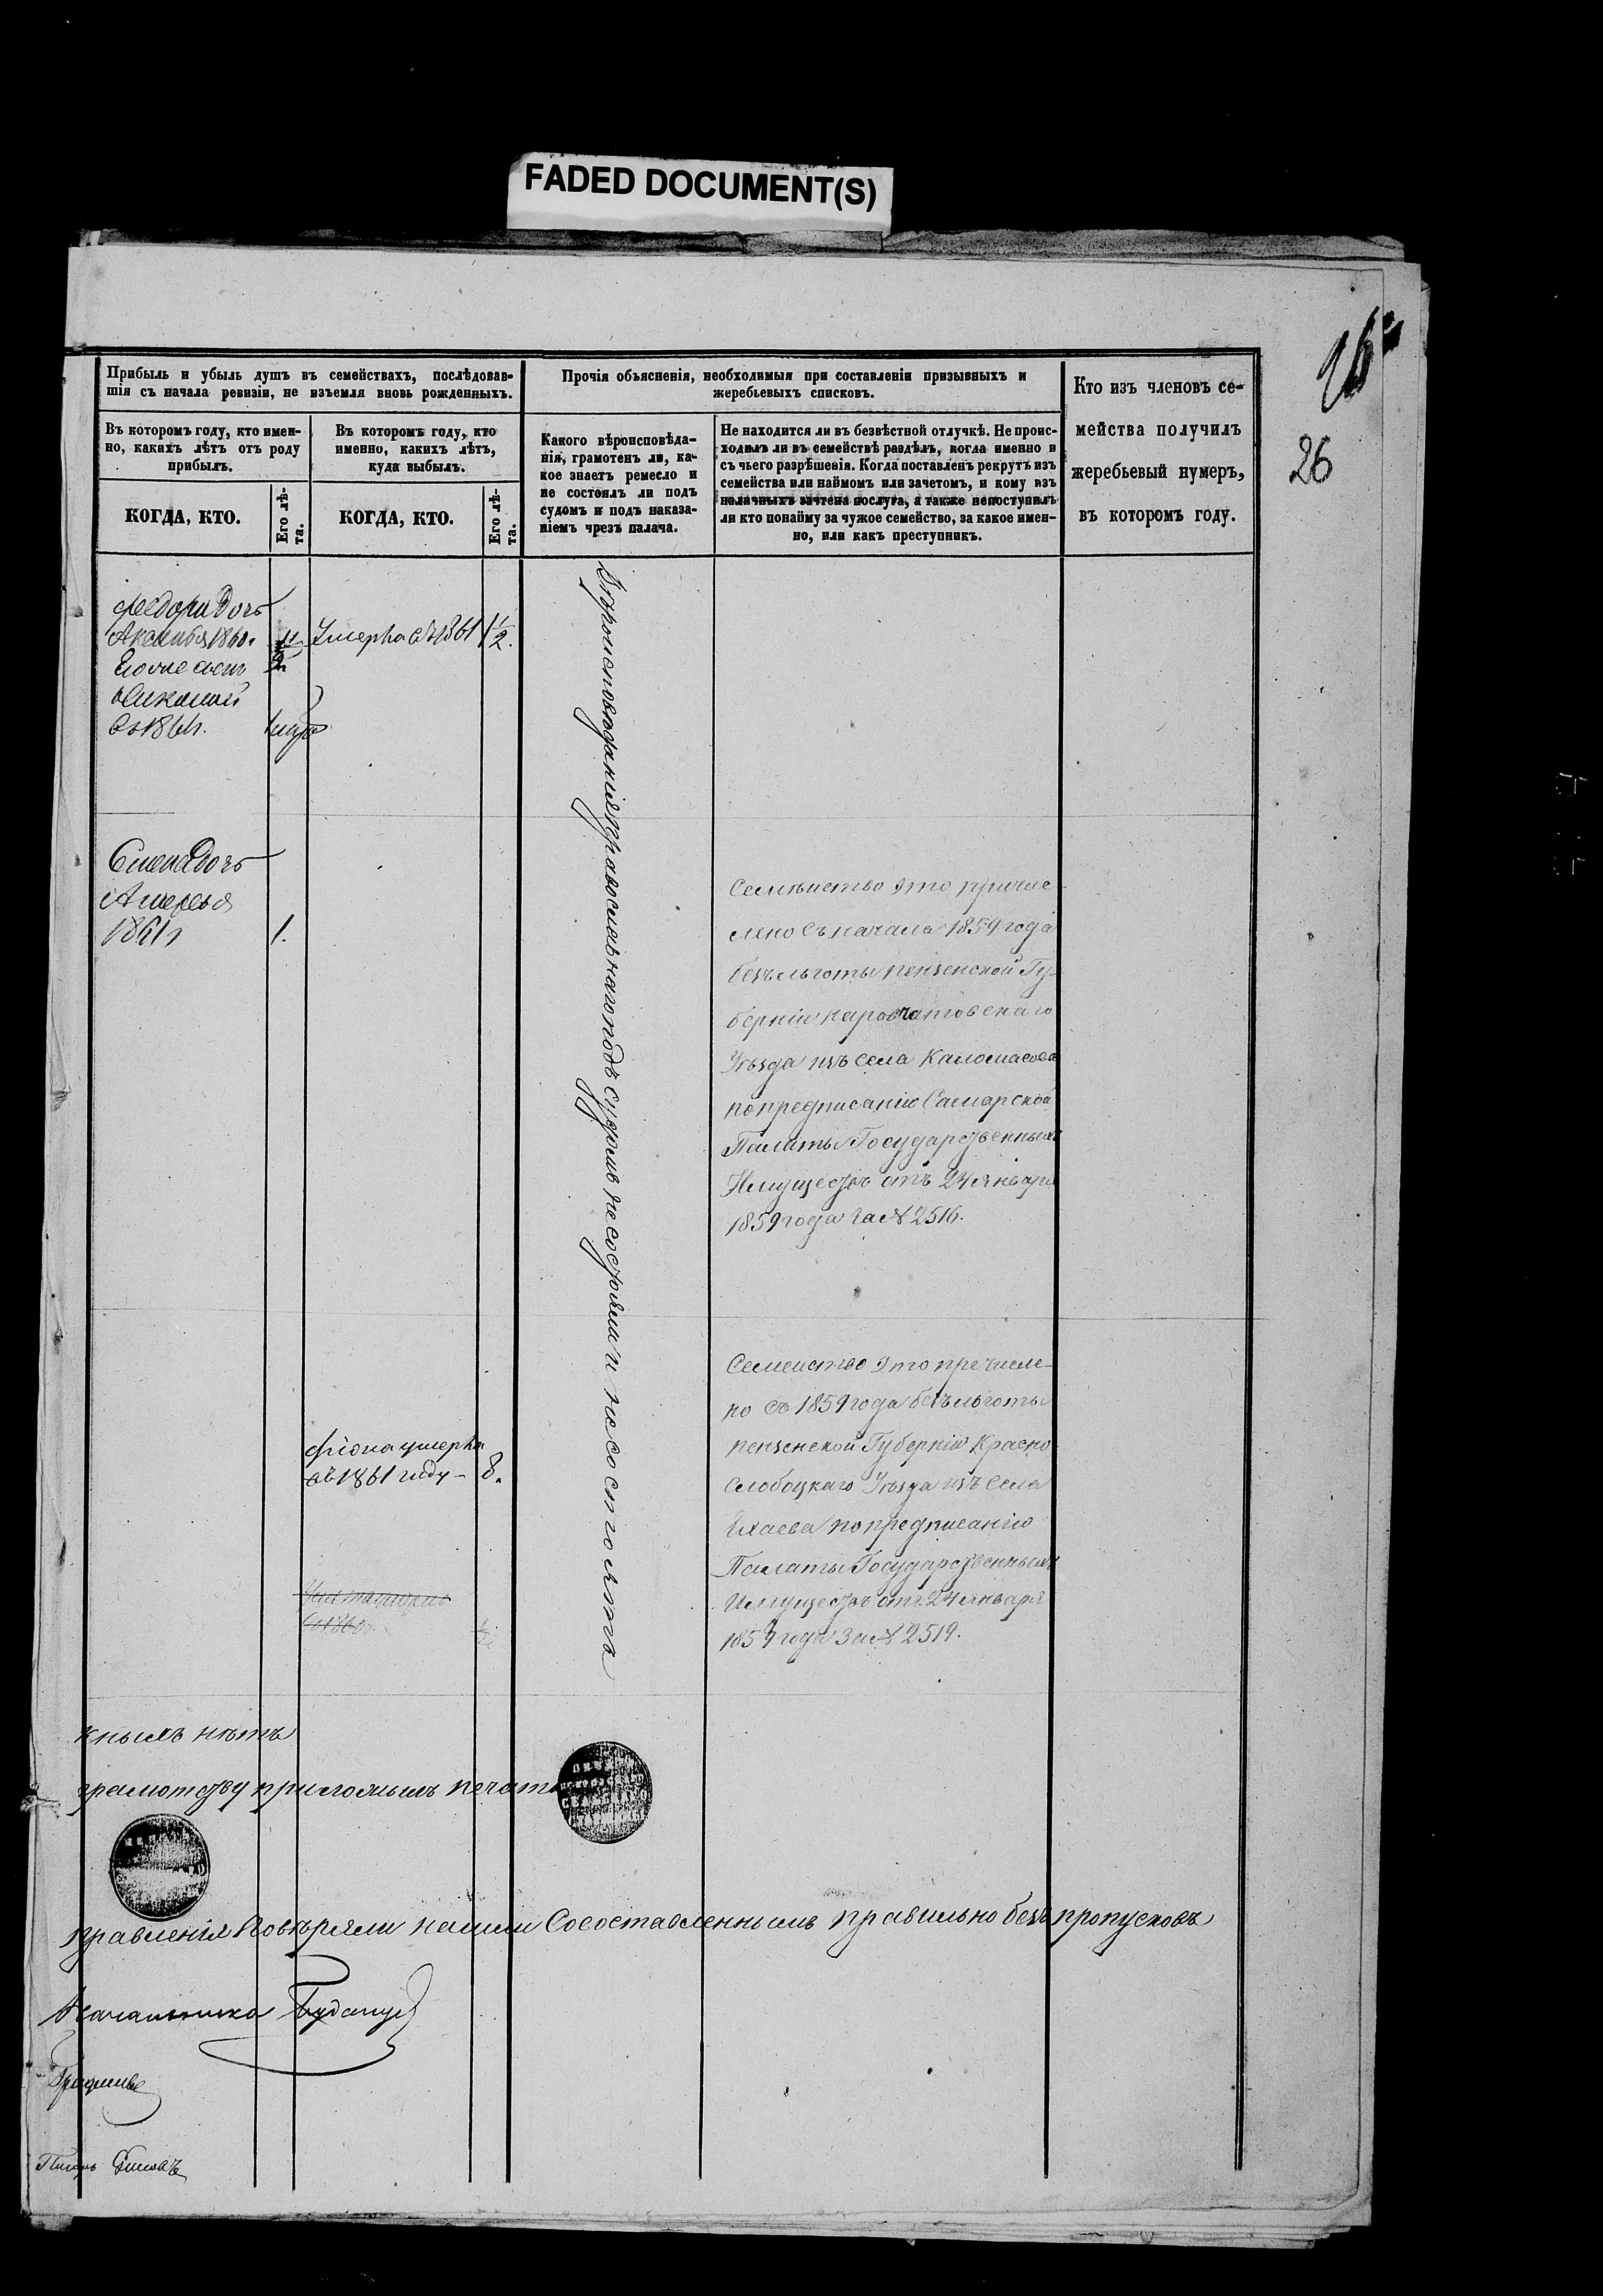 FADED DOCUMENT(S)
26
Прибыль и убыль душъ въ семействахъ, послѣдовав-
шія съ начала ревизіи, не изъемля вновь рожденныхъ.
Въ которомъ году, кто имен-
но, какихъ лѣтъ отъ роду
прибылъ.
КОГДА, КТО.
Его лѣ-
та.
Въ которомъ году, кто
именно, какихъ лѣтъ,
куда выбылъ.
КОГДА, КТО.
Его лѣ-
та.
Прочія объясненія, необходимыя при составленіи призывныхъ и
жеребьевыхъ списковъ.
Какого вѣроисповѣда-
нія, грамотенъ ли, ка-
кое знаетъ ремесло и
не состоялъ ли подъ
судомъ и подъ наказа-
ніемъ чрезъ палача.
Не находится ли въ безвѣстной отлучкѣ. Не проис-
ходилъ ли въ семействѣ раздѣлъ, когда именно и
съ чьего разрѣшенія. Когда поставленъ рекрутъ изъ
семейства или наймомъ или зачетомъ, и кому изъ
наличныхъ зачтена послуга, а также непоступилъ
ли кто понайму за чужое семейство, за какое имен-
но, или какъ преступникъ.
Кто изъ членовъ се-
мейства получилъ
жеребьевый нумеръ,
въ которомъ году.
26
Федора дочь
1860.
Умерла въ 1861 1½.
Николай
въ 1861.
Вѣроисповѣданія православнаго подъ судомъ не состояли и не состоятъ
дочь
1861
1.
Семейство это причис
лено съ начала 1859 года
безъ льготы пензенской Гу-
берніи наровчатовскаго
Уѣзда изъ села
по предписанію Самарской
Палаты Государственныхъ
Имуществъ отъ 24 января
1859 года за № 2516.
Семейство это пречисле-
но съ 1859 года безъ льготы
пензенской Губерніи Красно
слободцкаго Уѣзда изъ села
по предписанію
Палаты Государственныхъ
Имуществъ отъ 24 января
1859 года За № 2519.
Фіона умерла
въ 1861 году - 8.
нѣтъ
грамотству приложилъ печать
правленія повѣряли нашли Сосоставленнымъ правильно безъ пропусковъ
Начальника
Писарь